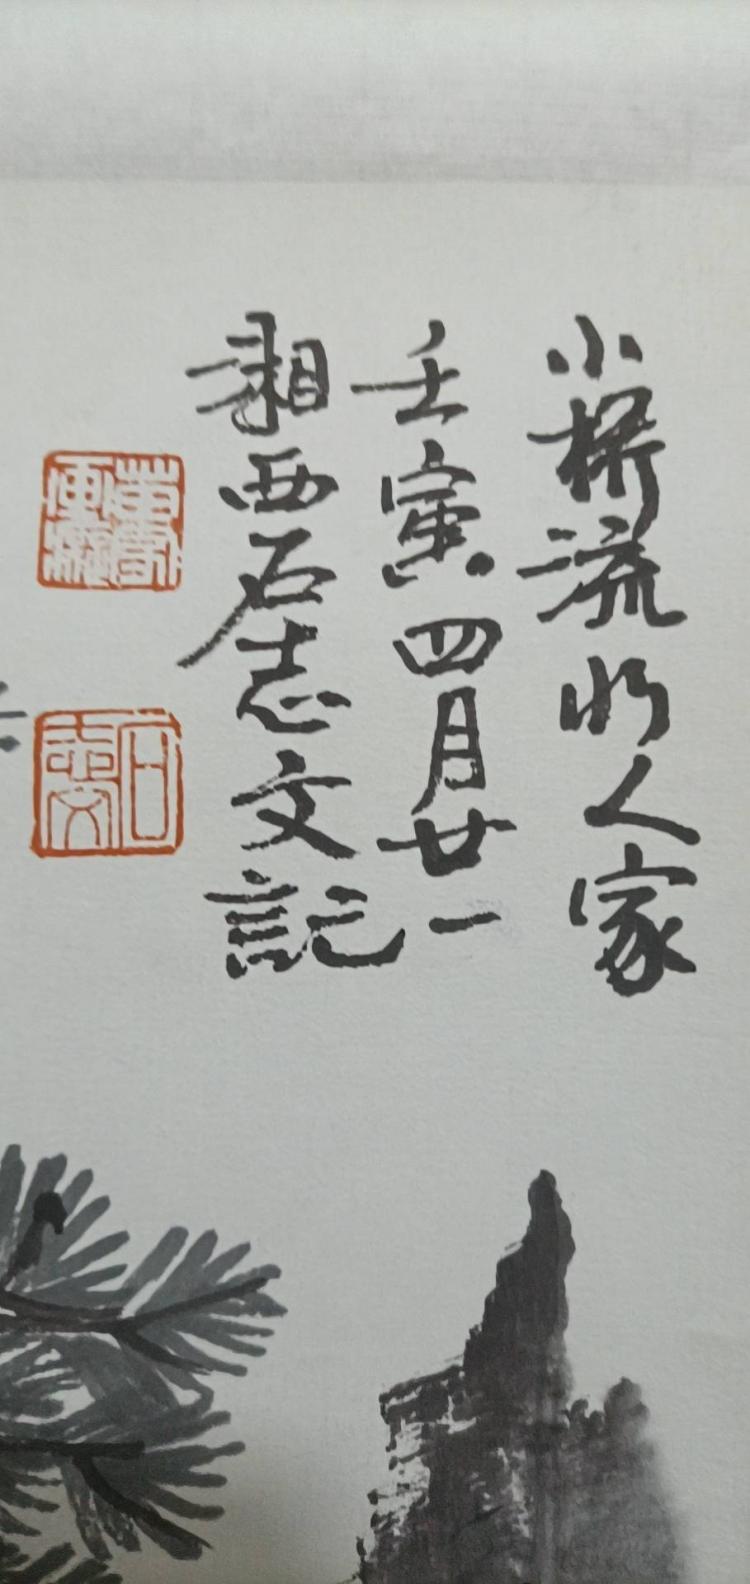 小桥流水人家
壬寅四月廿一
湘西石志文記
石志文